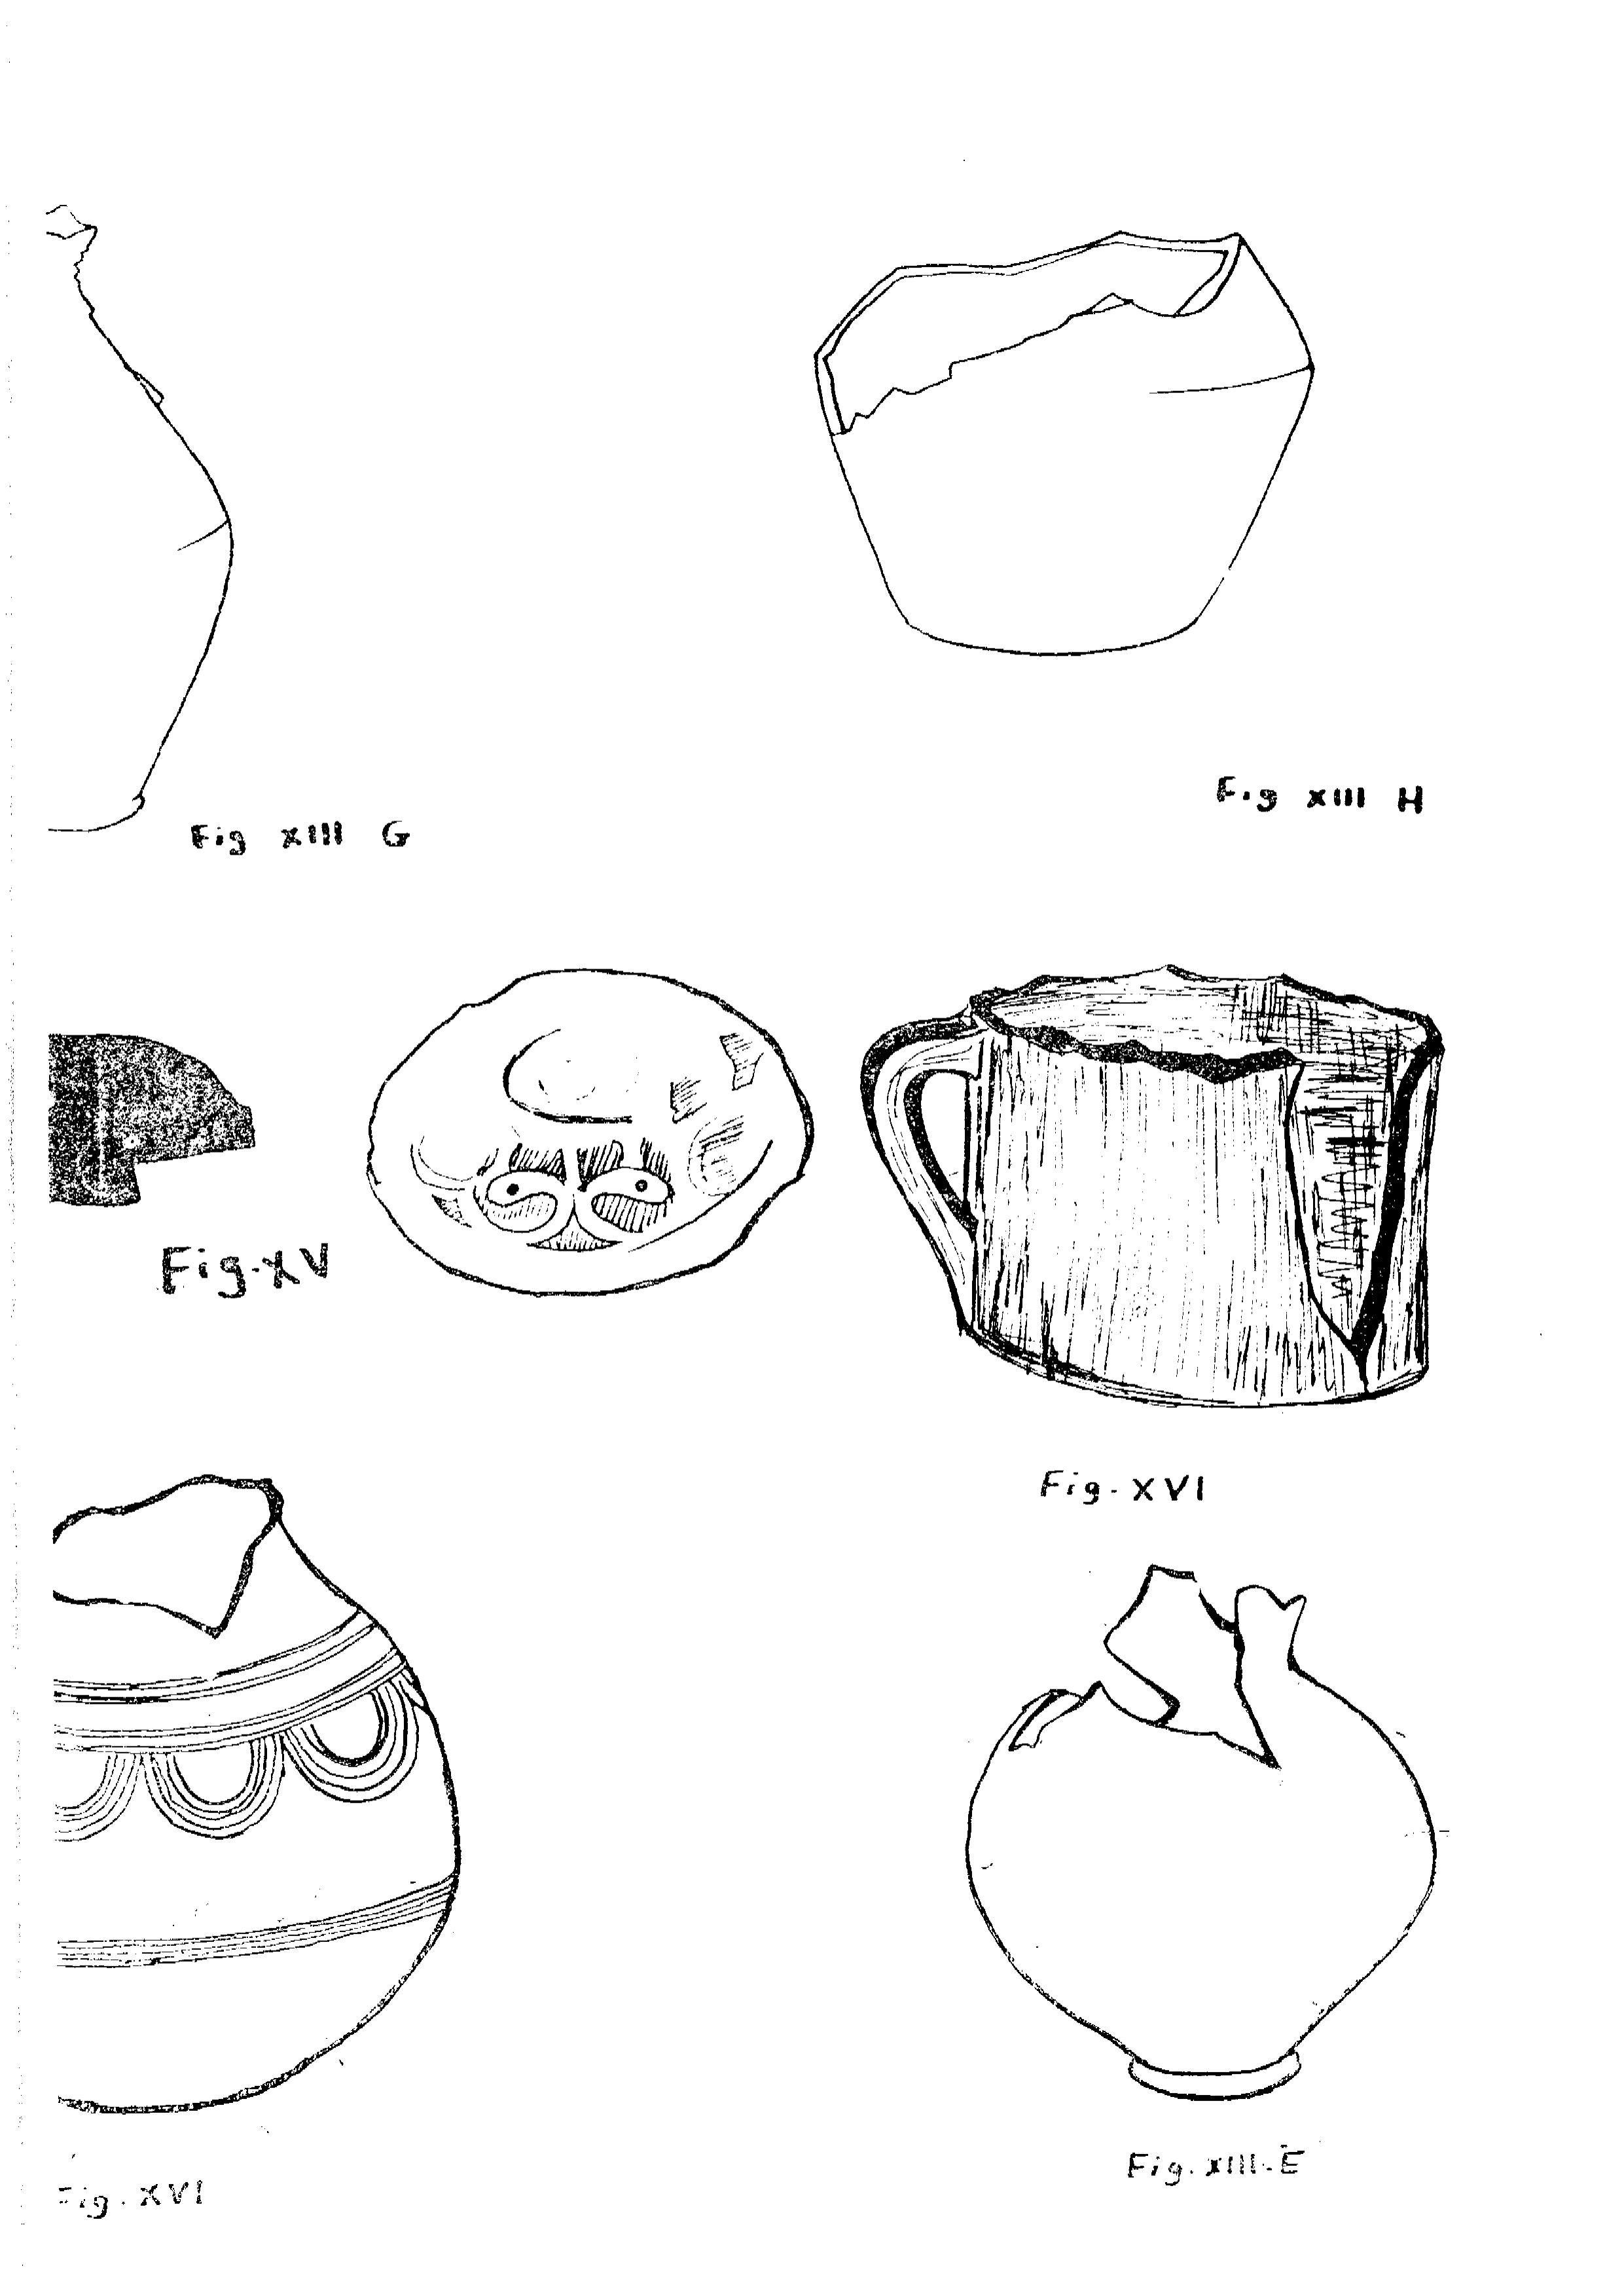 Fig XIII H
Fig XIII G
Fig. XV
Fig. XVI
Fig. XIII. E
Fig. XVI